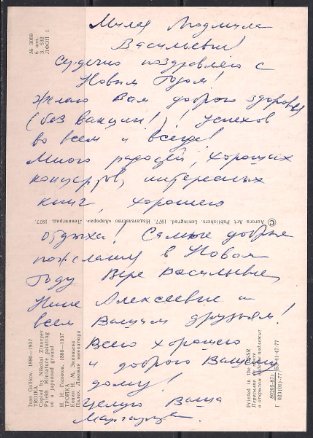 Милая Людмила
Васильевна!
Сердечно поздравляю с
Новым Годом!
Желаю Вам доброго здоровья
(без вакцин!), успехов
во всем и всегда!
Много радостей, хороших
концертов, интересных
книг, хорошего
отдыха! Самые добрые
пожелания в Новом
Году Вере Васильевне,
Нине Алексеевне и
всем Вашим друзьям!
Всего хорошего
и доброго Вашему
дому!
Целую Ваша
Маргарита
© Aurora Art Publishers. Leningrad. 1977. Издательство «Аврора». Ленинград. 1977.